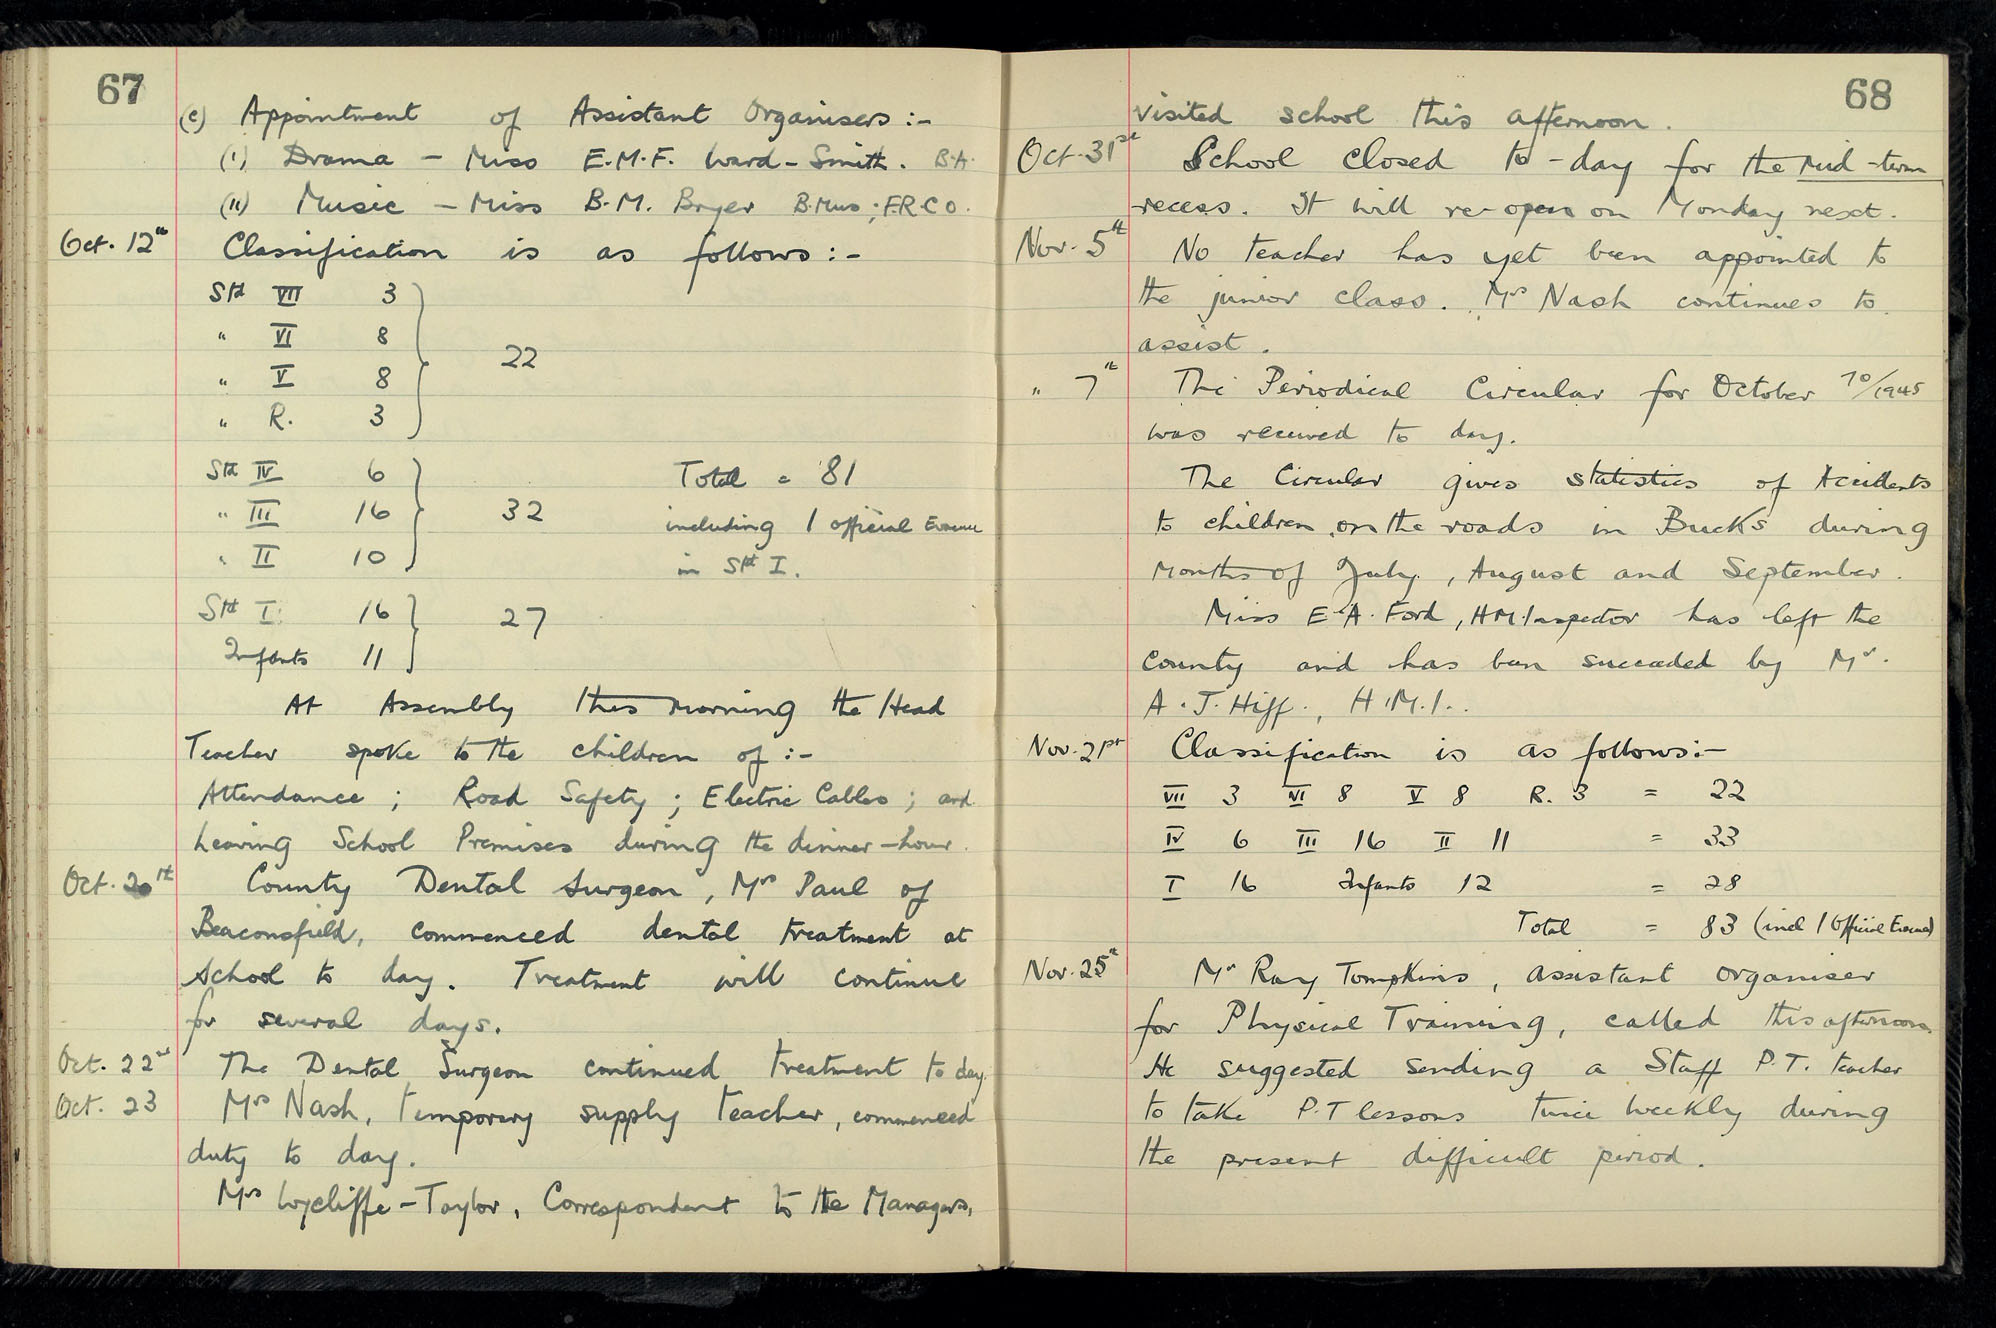 67
(c) Appointment of Assistant Organisers :-
(i) Drama - Miss E.M.F. Ward-Smith. B.A.
(ii) Music - Miss B.M. Bryer B.Mus; F.R.C.O.
Oct. 12th Classification is as follows :-
Std VII 3
" VI 8
22
" V 8
" R. 3
Std IV 6 Total = 81
" III 16 32 including 1 official Evacuee
" II 10 in Std I.
Std I 16 27
Infants 11
At Assembly this morning the Head
Teacher spoke to the children of :-
Attendance ; Road Safety ; Electric Cables ; and
Leaving School Premises during the dinner-hour.
Oct. 20th County Dental Surgeon, Mrs Paul of
Beaconsfield, commenced dental treatment at
School to day. Treatment will continue
for several days.
Oct. 22nd The Dental Surgeon continued treatment to day.
Oct. 23 Mrs Nash, temporary supply teacher, commenced
duty to day.
Mrs Wycliffe-Taylor, Correspondent to the Managers,
68
visited school this afternoon.
Oct. 31st School closed to-day for the mid-term
recess. It will re-open on Monday next.
Nov. 5th No teacher has yet been appointed to
the junior class. Mrs Nash continues to
assist.
" 7th The Periodical Circular for October 10/1945
was received to day.
The Circular gives statistics of Accidents
to children on the roads in Bucks during
months of July, August and September.
Miss E.A. Ford, H.M. Inspector has left the
County and has been succeeded by Mr.
A.J. Hiff., H.M.I..
Nov. 21st Classification is as follows:-
VII 3 VI 8 V 8 R. 3 = 22
IV 6 III 16 II 11 = 33
I 16 Infants 12 = 28
Total = 83 (incl 1 Official Evacuee)
Nov. 25th Mr Ray Tompkins, assistant organiser
for Physical Training, called this afternoon.
He suggested sending a Staff P.T. teacher
to take P.T lessons twice weekly during
the present difficult period.